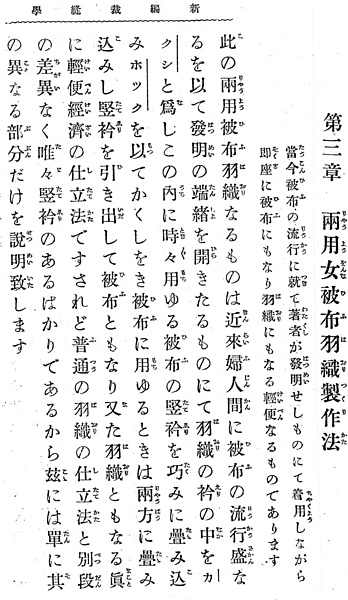 新編裁縫學
第三章　兩用女被布羽織製作法
當今被布の流行に就て著者が發明せしものにて着用しながら
即座に被布にもなり羽織にもなる輕便なるものであります
此の兩用被布羽織なるものは近來婦人間に被布の流行盛な
るを以て發明の端緒を開きたるものにて羽織の衿の中をカ
クシと爲しこの内に時々用ゆる被布の竪衿を巧みに疊み込
みホックを以てかくしをき被布に用ゆるときは兩方に疊み
込みし竪衿を引き出して被布ともなり又た羽織ともなる眞
に輕便經濟の仕立法ですされど普通の羽織の仕立法と別段
の差異なく唯々竪衿のあるばかりであるから玆には單に其
の異なる部分だけを説明致します